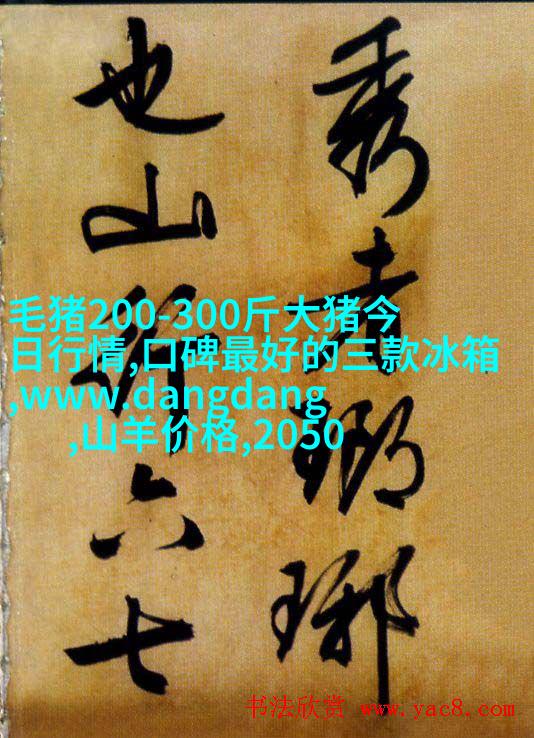 秀者瑯琊
也山行六七
毛猪200-300斤大猪今
日行情,口碑最好的三款冰箱
,www.dangdang
,山羊价格,2050
书法欣赏 www.yac8.com